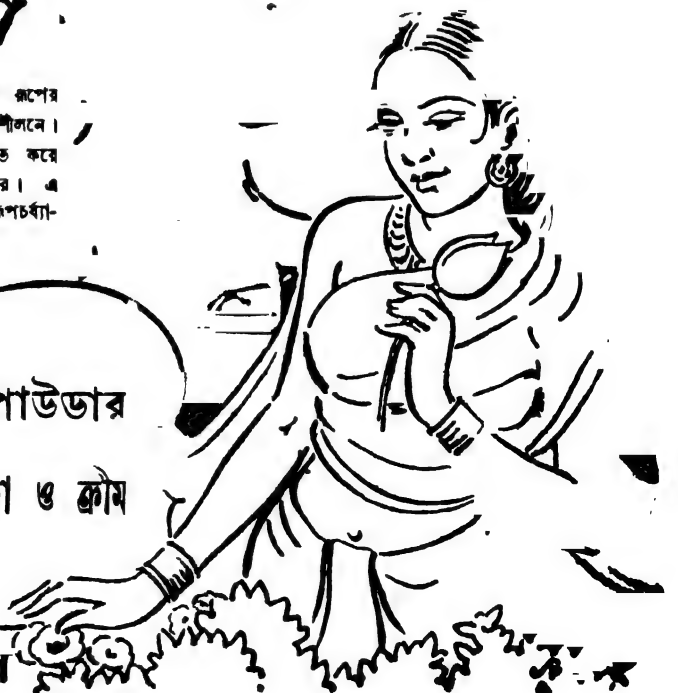 রূপের
শীলনে।
করে
র। এ
রূপচর্য্যা-
পাউডার
ও ক্রীম